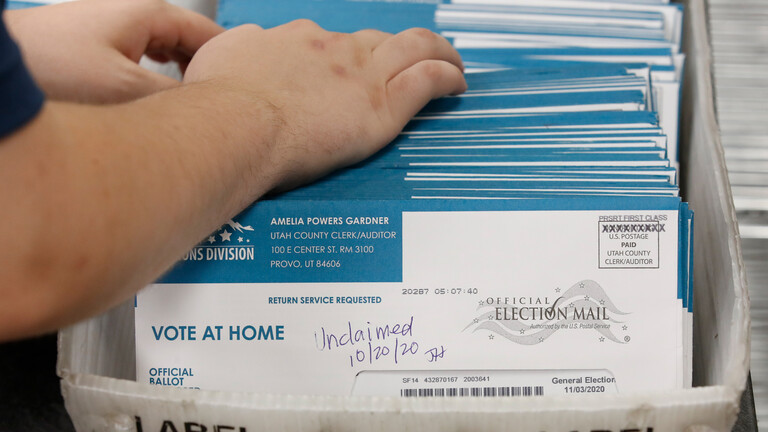 AMELIA POWERS GARDNER
UTAH COUNTY CLERK/AUDITOR
100 E CENTER ST, RM 3100
PROVO, UT 84606
DIVISION
PRSRT FIRST CLASS
XXXXXXXXX
U.S. POSTAGE
PAID
UTAH COUNTY
CLERK/AUDITOR
RETURN SERVICE REQUESTED
20287 05:07:40
OFFICIAL
ELECTION MAIL
Authorized by the U.S. Postal Service
®
VOTE AT HOME
Unclaimed
10/20/20
OFFICIAL
BALLOT
SF14 432870167 2003641
General Election
11/03/2020
LABEL